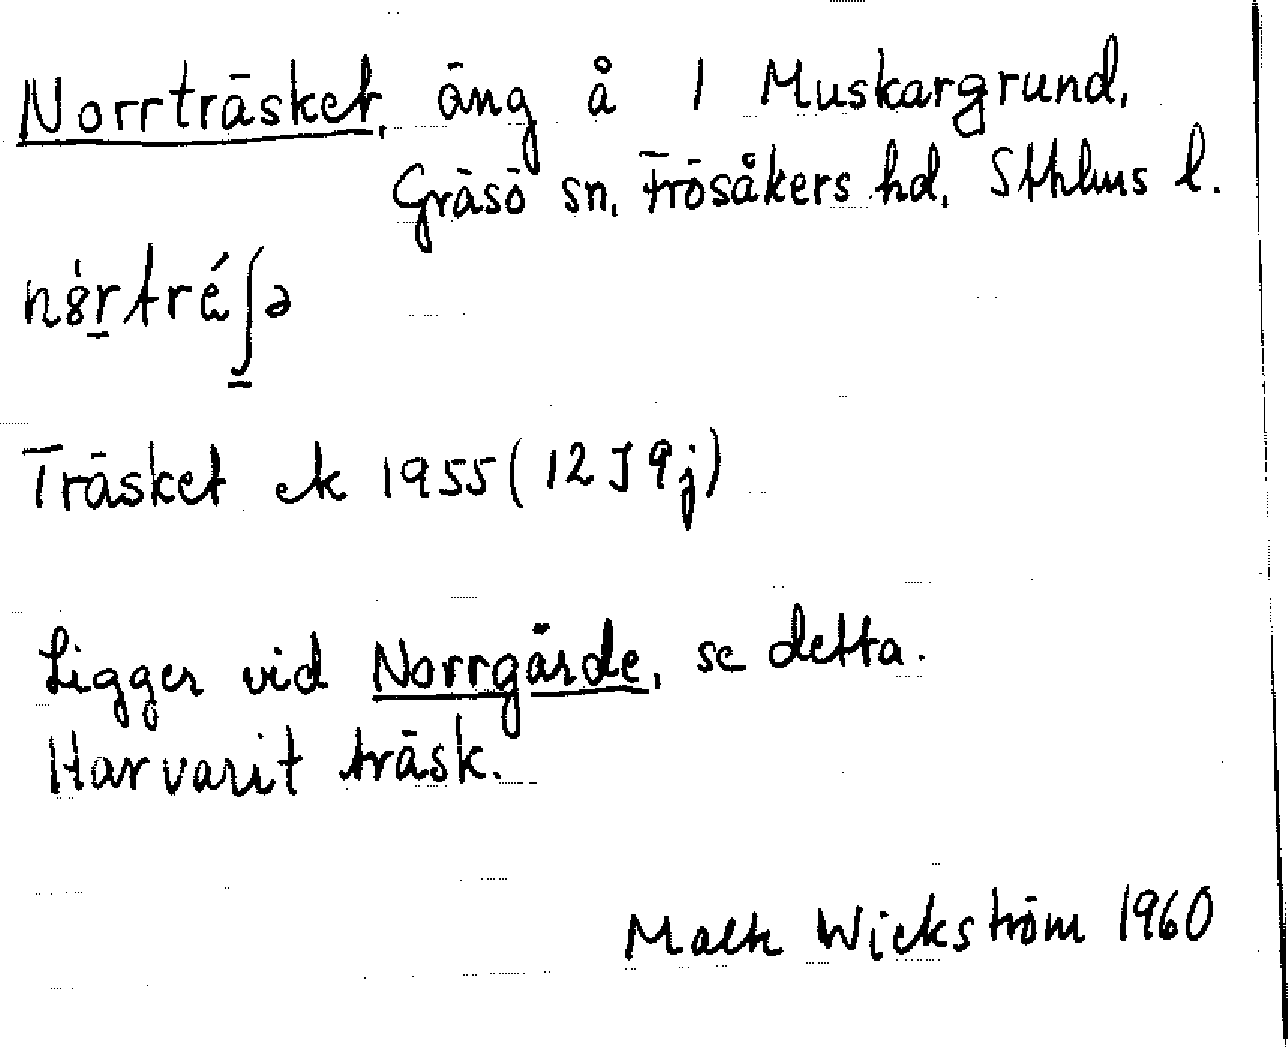 Norrträsket, äng å 1 Muskargrund,
Gräsö sn, Frösåkers hd, Sthlms l.
Träsket ek 1955 (12 J 9 j)
Ligger vid Norrgärde, se detta.
Har varit träsk.
Wickström 1960